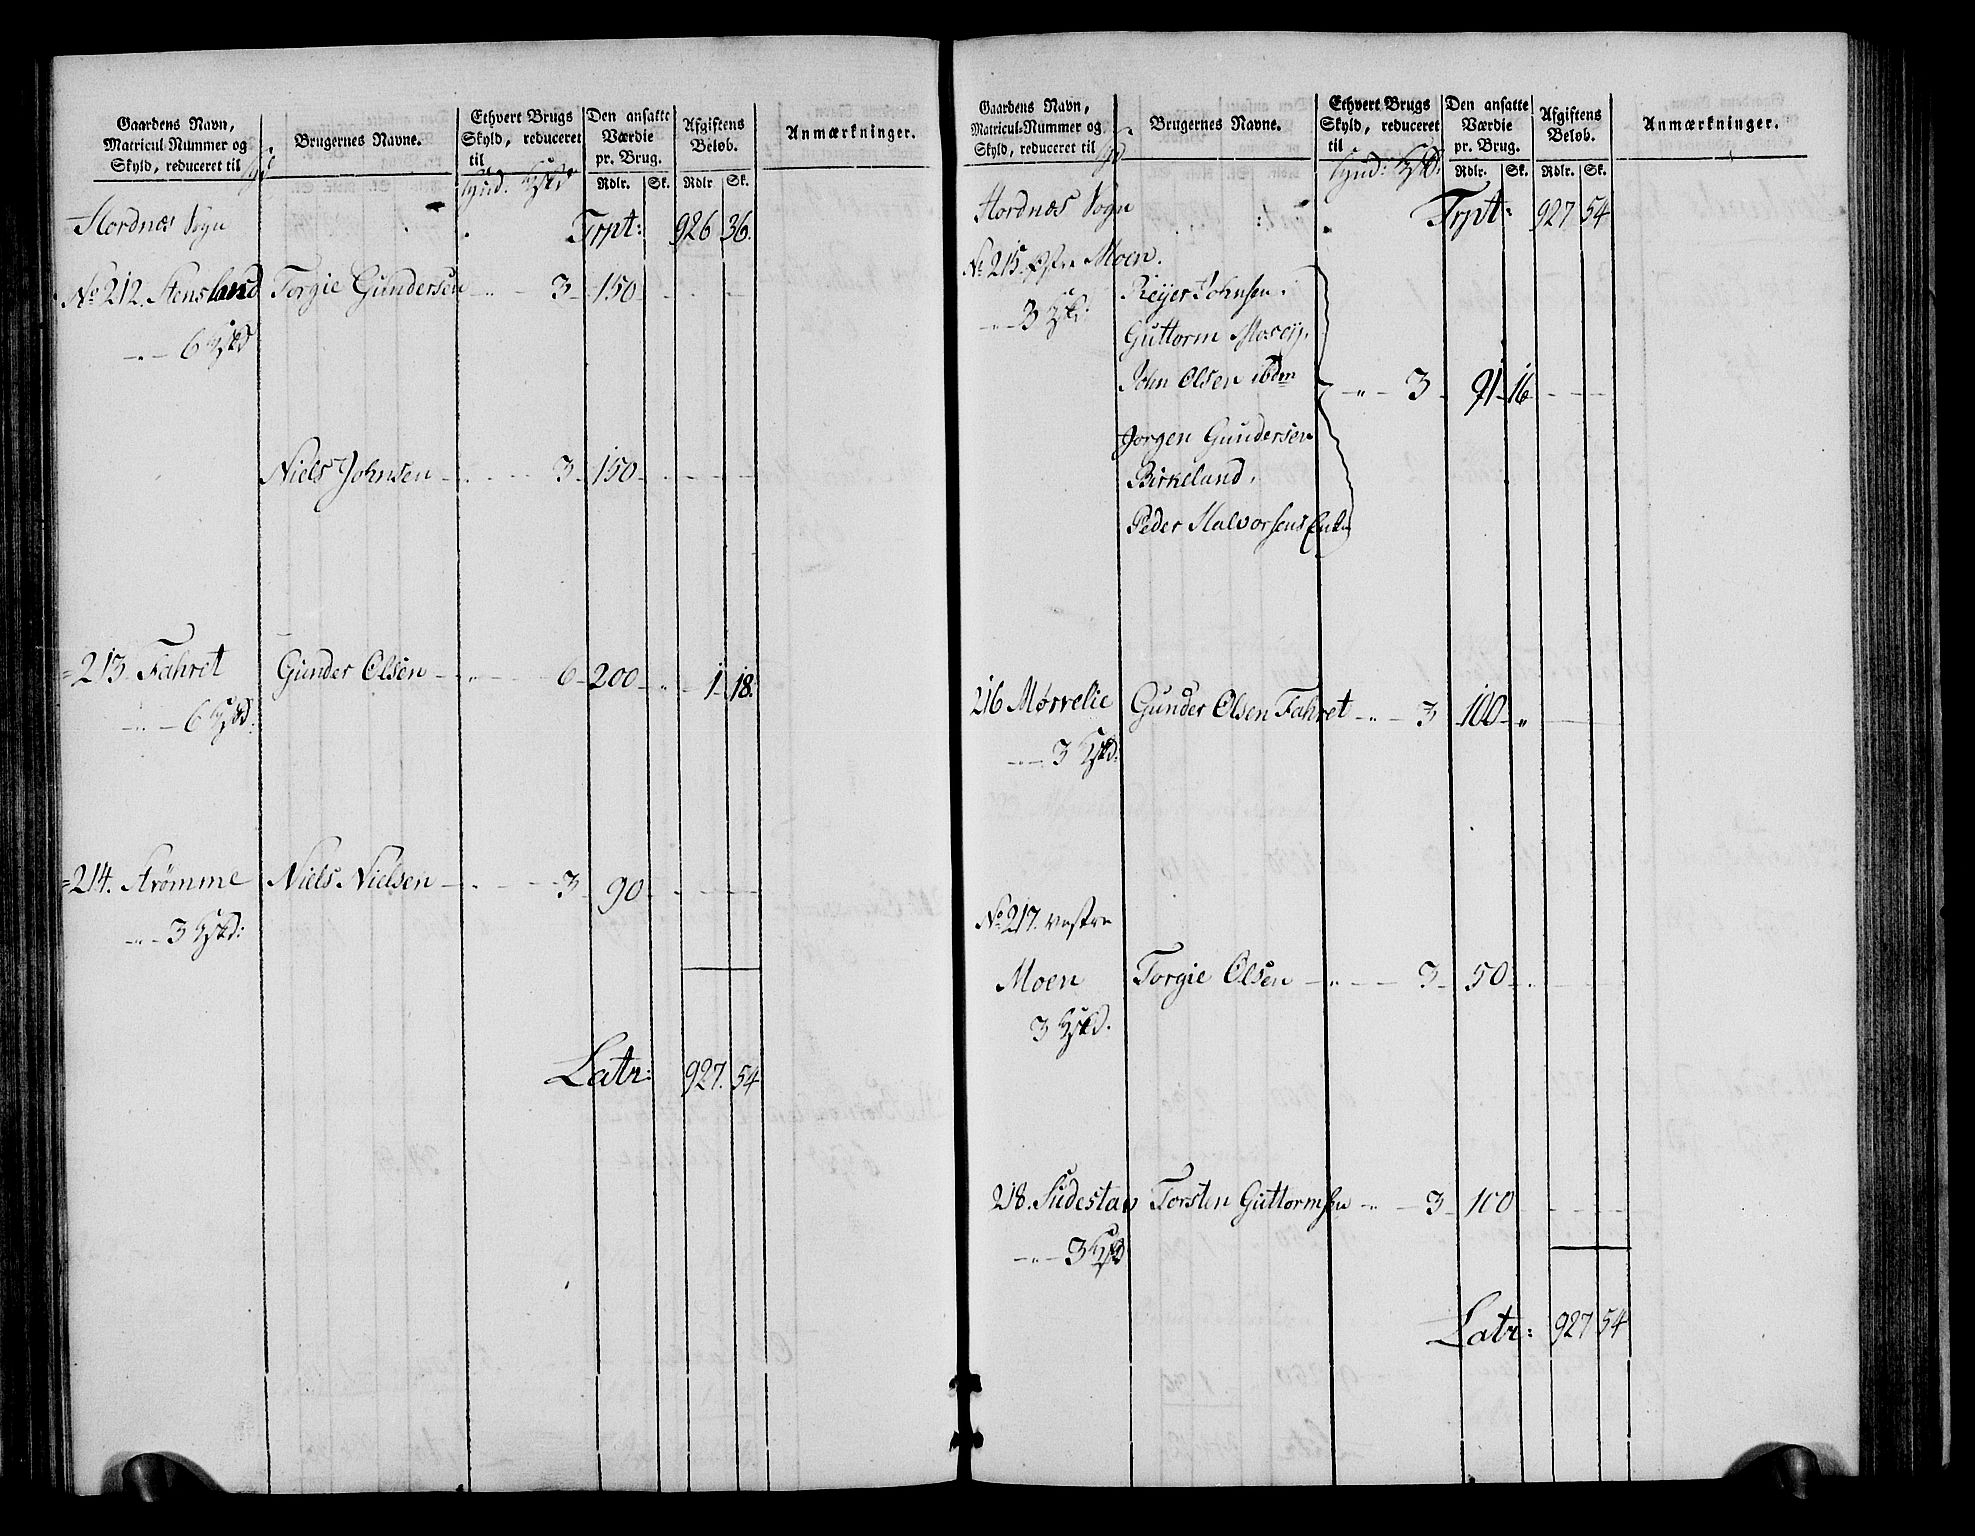 Gaardens Navn, Matricul-Nummer og Skyld, reduceret til
Brugernes Navne.
Ethvert Brugs Skyld, reduceret til
Den ansatte Værdie pr. Brug.
Afgiftens Beløb.
Anmærkninger.
Rdlr. Sk. Rdlr Sk.
Hordnæs Sogn Trpt: 926 36.
No 212. Stensland Torgie Gundersen 3 150
6
Niels Johnsen 3 150
213 Fahret Gunder Olsen 6 200 1 18.
6
214. Strømme Niels Nielsen 3 90
3
Latr: 927. 54
Gaardens Navn, Matricul-Nummer og Skyld, reduceret til
Brugernes Navne.
Ethvert Brugs Skyld, reduceret til
Den ansatte Værdie pr. Brug.
Afgiftens Beløb.
Anmærkninger.
Rdlr. Sk. Rdlr. Sk.
Hordnæs Sogn Trpt: 927 54
No 215. Østre Moen.
3
Reyer Johnsen.
Guttorm Moseij.
John Olsen ibdm 3 91 16
Jorgen Gundersen
Birkeland,
Peder Halvorsens Enke
216 Mørvelie Gunder Olsen Fahret 3 100
3
No 217. vestre
Moen Torgie Olsen 3 50
3
218. Sudestav Torsten Guttormsen 3 100
3
Latr: 927 54